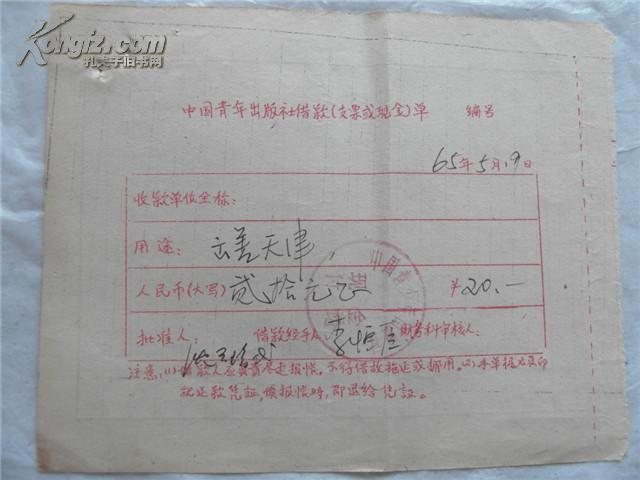 Kongfz.com
孔夫子旧书网
中国青年出版社借款(支票或现金)单 编号
65年5月19日
收款单位全称:
用途: 去天津
人民币(大写) 贰拾元正 ¥20.—
批准人: 借款经手人 李恒 财务科审核人:
注意:(1)借款人应负责尽速报帐,不得借故拖延或挪用。(2)本单报后即
借还款凭证,俟报帐时,即退给凭证。